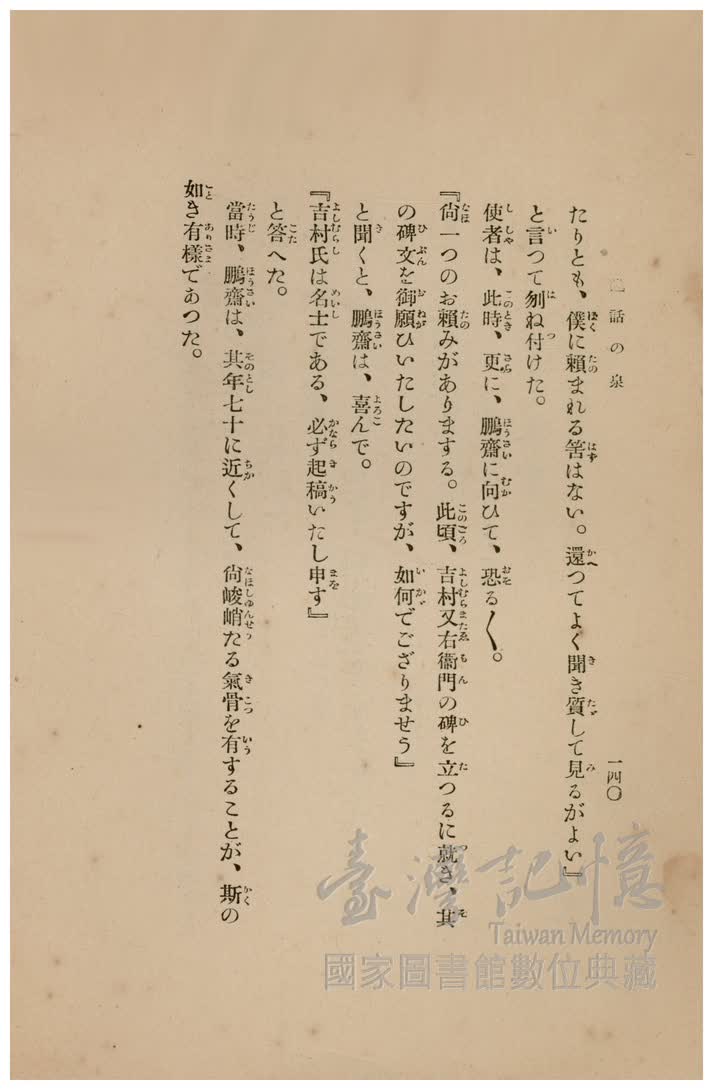 話の泉
一四〇
たりとも、僕に賴まれる筈はない。還つてよく聞き質して見るがよい』
と言つて刎ね付けた。
使者は、此時、更に、鵬齋に向ひて、恐る〱。
『尙一つのお賴みがありまする。此頃、吉村又右衞門の碑を立つるに就き、其
の碑文を御願ひいたしたいのですが、如何でござりませう』
と聞くと、鵬齋は、喜んで。
『吉村氏は名士である、必ず起稿いたし申す』
と答へた。
當時、鵬齋は、其年七十に近くして、尙峻峭たる氣骨を有することが、斯の
如き有樣であつた。
臺灣記憶
Taiwan Memory
國家圖書館數位典藏